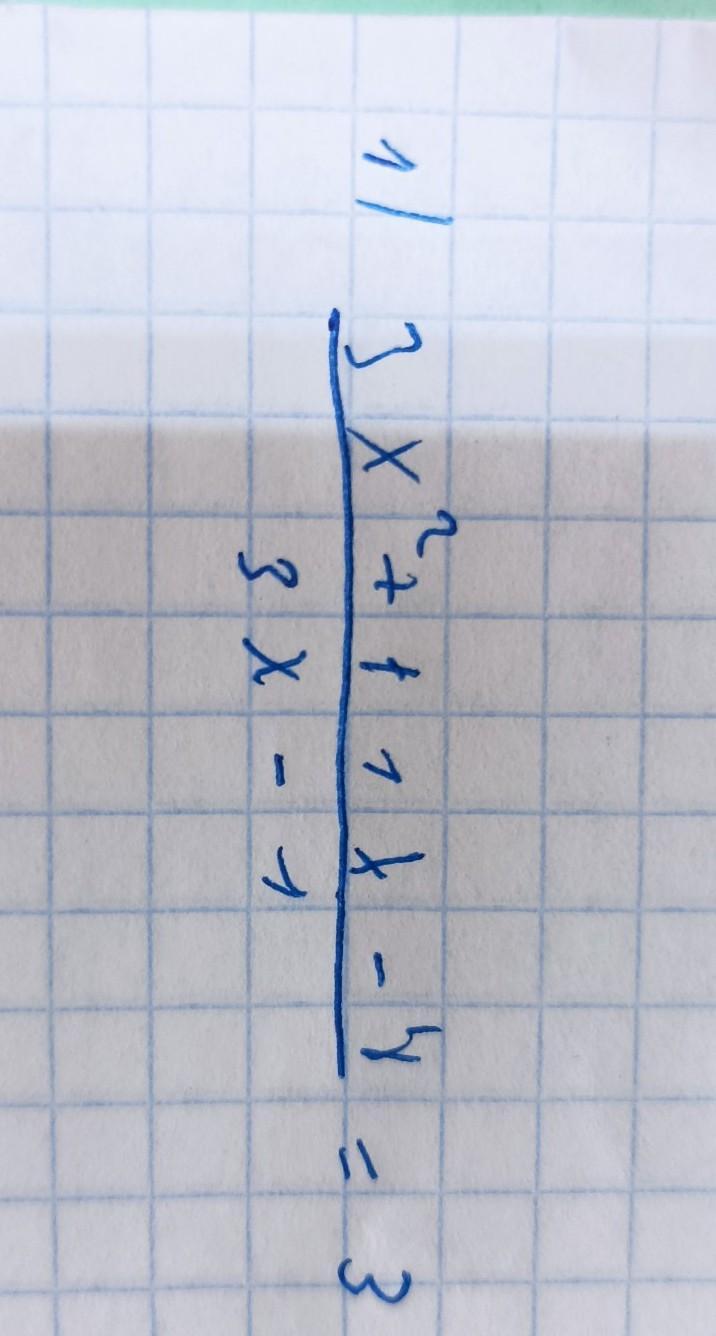 1/ 3x² + 11x - 4 = 3
3x - 1